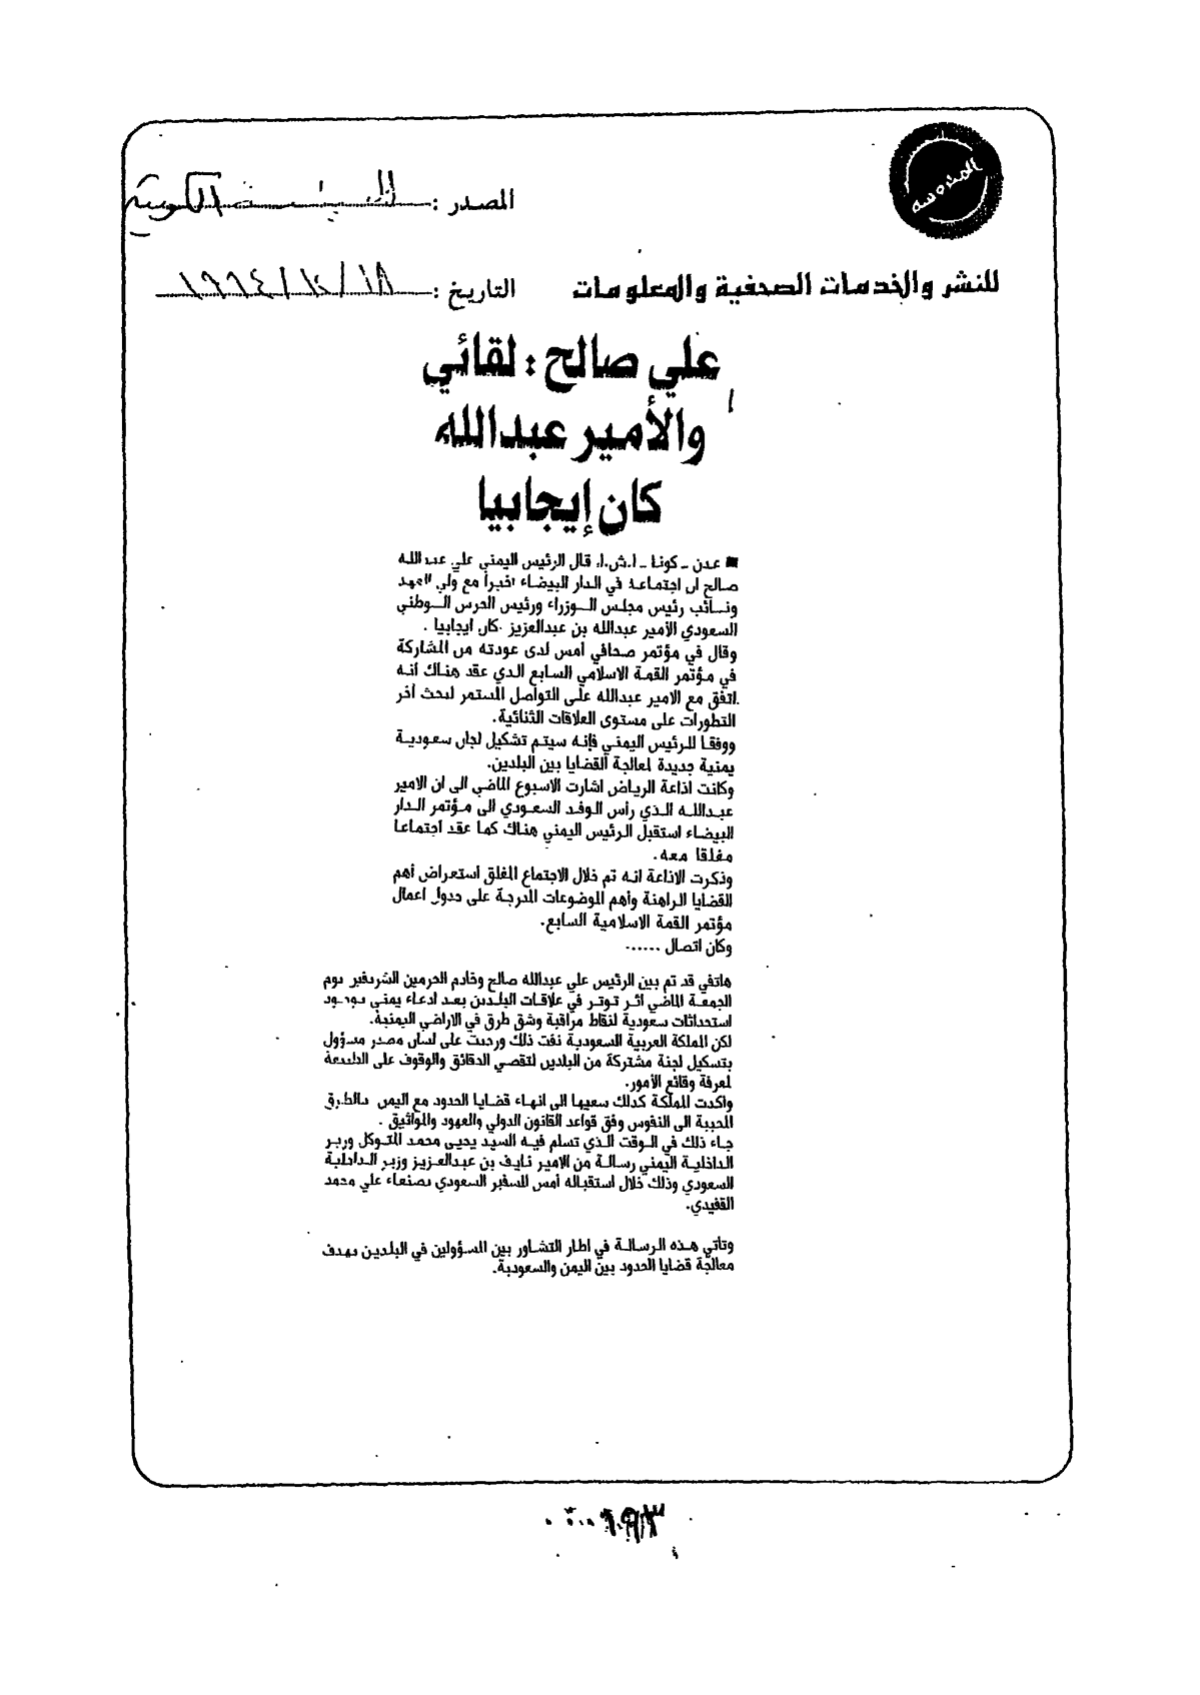 المحروسة
المصدر : السياسة الكويتية
للنشر والخدمات الصحفية والمعلومات
التاريخ : ١٨ / ١٢ / ١٩٩٤
علي صالح : لقائي
والأمير عبدالله
كان إيجابيا
■ عدن ـ كونا ـ ا.ش.ا. قال الرئيس اليمني علي عبدالله
صالح ان اجتماعه في الدار البيضاء اخيرا مع ولي العهد
ونائب رئيس مجلس الوزراء ورئيس الحرس الوطني
السعودي الأمير عبدالله بن عبدالعزيز كان ايجابيا .
وقال في مؤتمر صحافي امس لدى عودته من المشاركة
في مؤتمر القمة الاسلامي السابع الذي عقد هناك انه
اتفق مع الامير عبدالله على التواصل المستمر لبحث آخر
التطورات على مستوى العلاقات الثنائية.
ووفقا للرئيس اليمني فإنه سيتم تشكيل لجان سعودية
يمنية جديدة لمعالجة القضايا بين البلدين.
وكانت اذاعة الرياض اشارت الاسبوع الماضي الى ان الامير
عبدالله الذي رأس الوفد السعودي الى مؤتمر الدار
البيضاء استقبل الرئيس اليمني هناك كما عقد اجتماعا
مغلقا معه.
وذكرت الاذاعة انه تم خلال الاجتماع المغلق استعراض أهم
القضايا الراهنة وأهم الموضوعات المدرجة على جدول اعمال
مؤتمر القمة الاسلامية السابع.
وكان اتصال ......
هاتفي قد تم بين الرئيس علي عبدالله صالح وخادم الحرمين الشريفين يوم
الجمعة الماضي اثر توتر في علاقات البلدين بعد ادعاء يمني بوجود
استحداثات سعودية لنقاط مراقبة وشق طرق في الاراضي اليمنية.
لكن المملكة العربية السعودية نفت ذلك ورحبت على لسان مصدر مسؤول
بتشكيل لجنة مشتركة من البلدين لتقصي الدقائق والوقوف على الطبيعة
لمعرفة وقائع الأمور.
واكدت المملكة كذلك سعيها الى انهاء قضايا الحدود مع اليمن بالطرق
المحببة الى النفوس وفق قواعد القانون الدولي والعهود والمواثيق .
جاء ذلك في الوقت الذي تسلم فيه السيد يحيى محمد المتوكل وزير
الداخلية اليمني رسالة من الامير نايف بن عبدالعزيز وزير الداخلية
السعودي وذلك خلال استقباله أمس للسفير السعودي بصنعاء علي محمد
القفيدي.
وتأتي هذه الرسالة في اطار التشاور بين المسؤولين في البلدين بهدف
معالجة قضايا الحدود بين اليمن والسعودية.